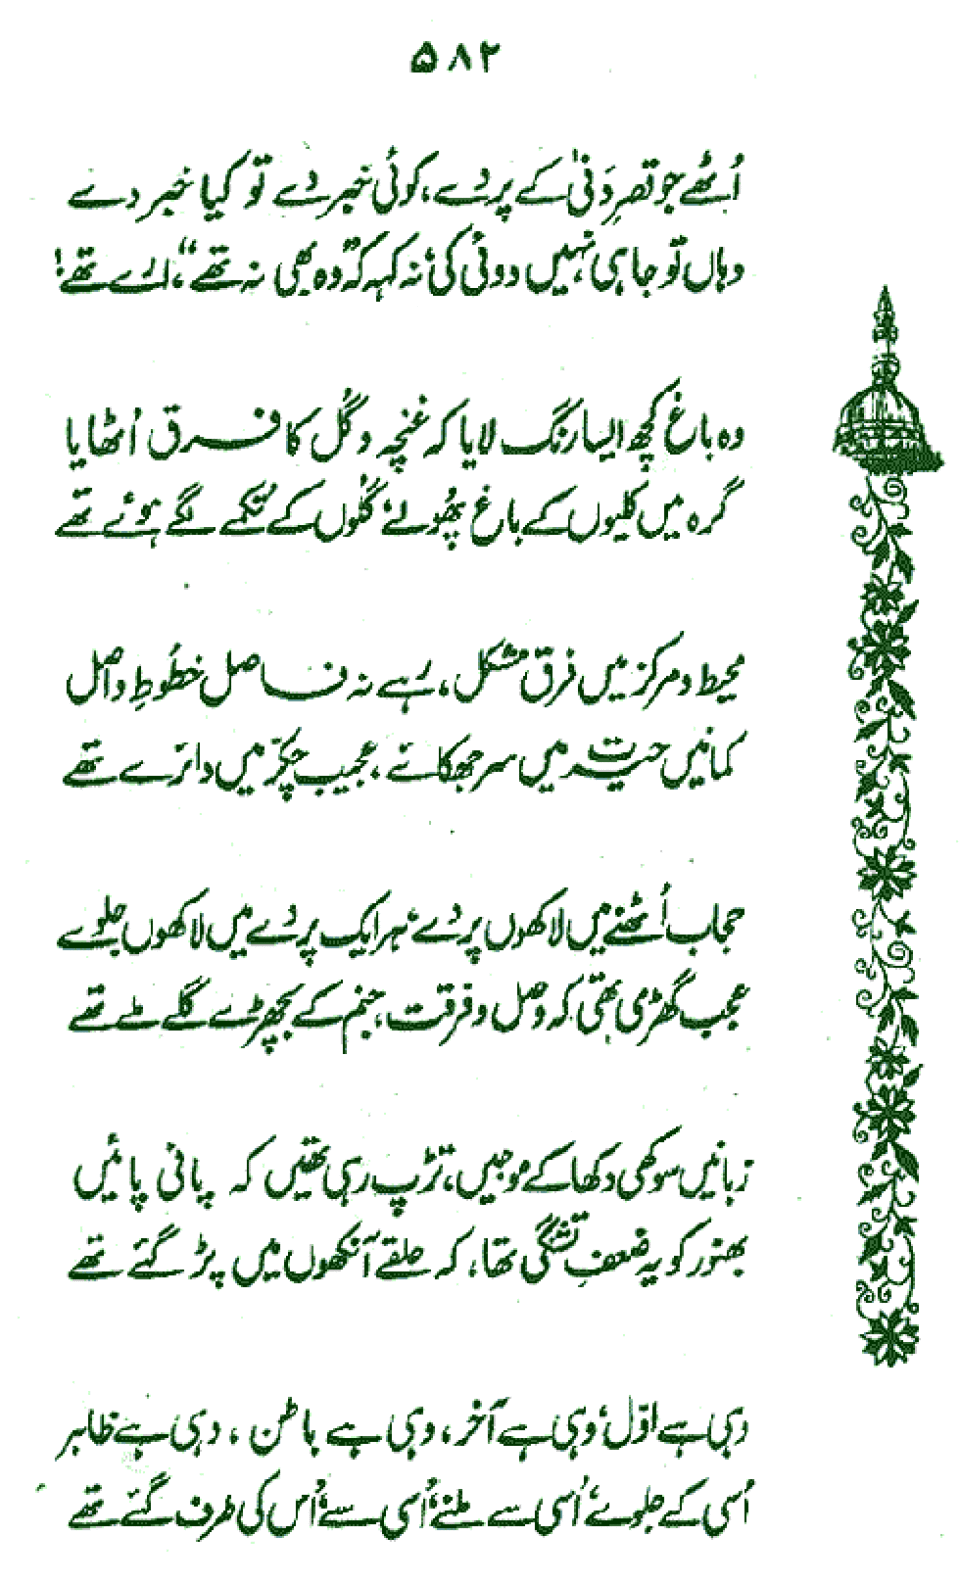 ۵۸۲
اُٹھے جو قصرِ دَنیٰ کے پردے، کوئی خبر دے تو کیا خبر دے
وہاں تو جا ہی نہیں دوئی کی، نہ کہہ کہ ”وہ بھی نہ تھے“، ارے تھے!
وہ باغ کچھ ایسا رنگ لایا کہ غنچہ و گُل کا فرق اُٹھایا
گرہ میں کلیوں کے باغ پھُولے، گُلوں کے تُکمے لگے ہوئے تھے
محیط و مرکز میں فرق مشکل، رہے نہ فاصل خطُوطِ واصل
کمانیں حیرت میں سر جھکائے، عجیب چکرّ میں دائرے تھے
حجاب اُٹھنے میں لاکھوں پردے، ہر ایک پردے میں لاکھوں جلوے
عجب گھڑی تھی کہ وصل و فرقت، جنم کے بچھڑے گلے ملے تھے
زبانیں سوکھی دکھا کے موجیں، تڑپ رہی تھیں کہ پانی پائیں
بھنور کو یہ ضعفِ تشنگی تھا، کہ حلقے آنکھوں میں پڑ گئے تھے
وہی ہے اوّل، وہی ہے آخر، وہی ہے باطن، وہی ہے ظاہر
اُسی کے جلوے، اُسی سے ملنے، اُسی سے، اُس کی طرف گئے تھے